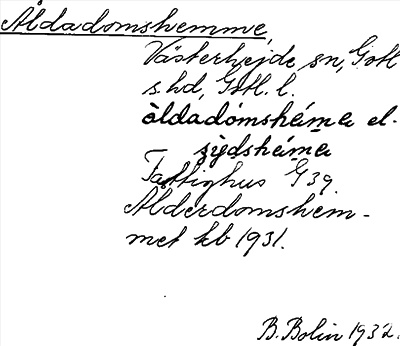 Åldadomshemme,
Västerhejde sn, Gotl
s hd, Gotl. l.
åldadómshémɐ el.
sỳdshémɐ
Fattighus G 39.
Ålderdomshem-
met kb 1931.
B. Bolin 1932.